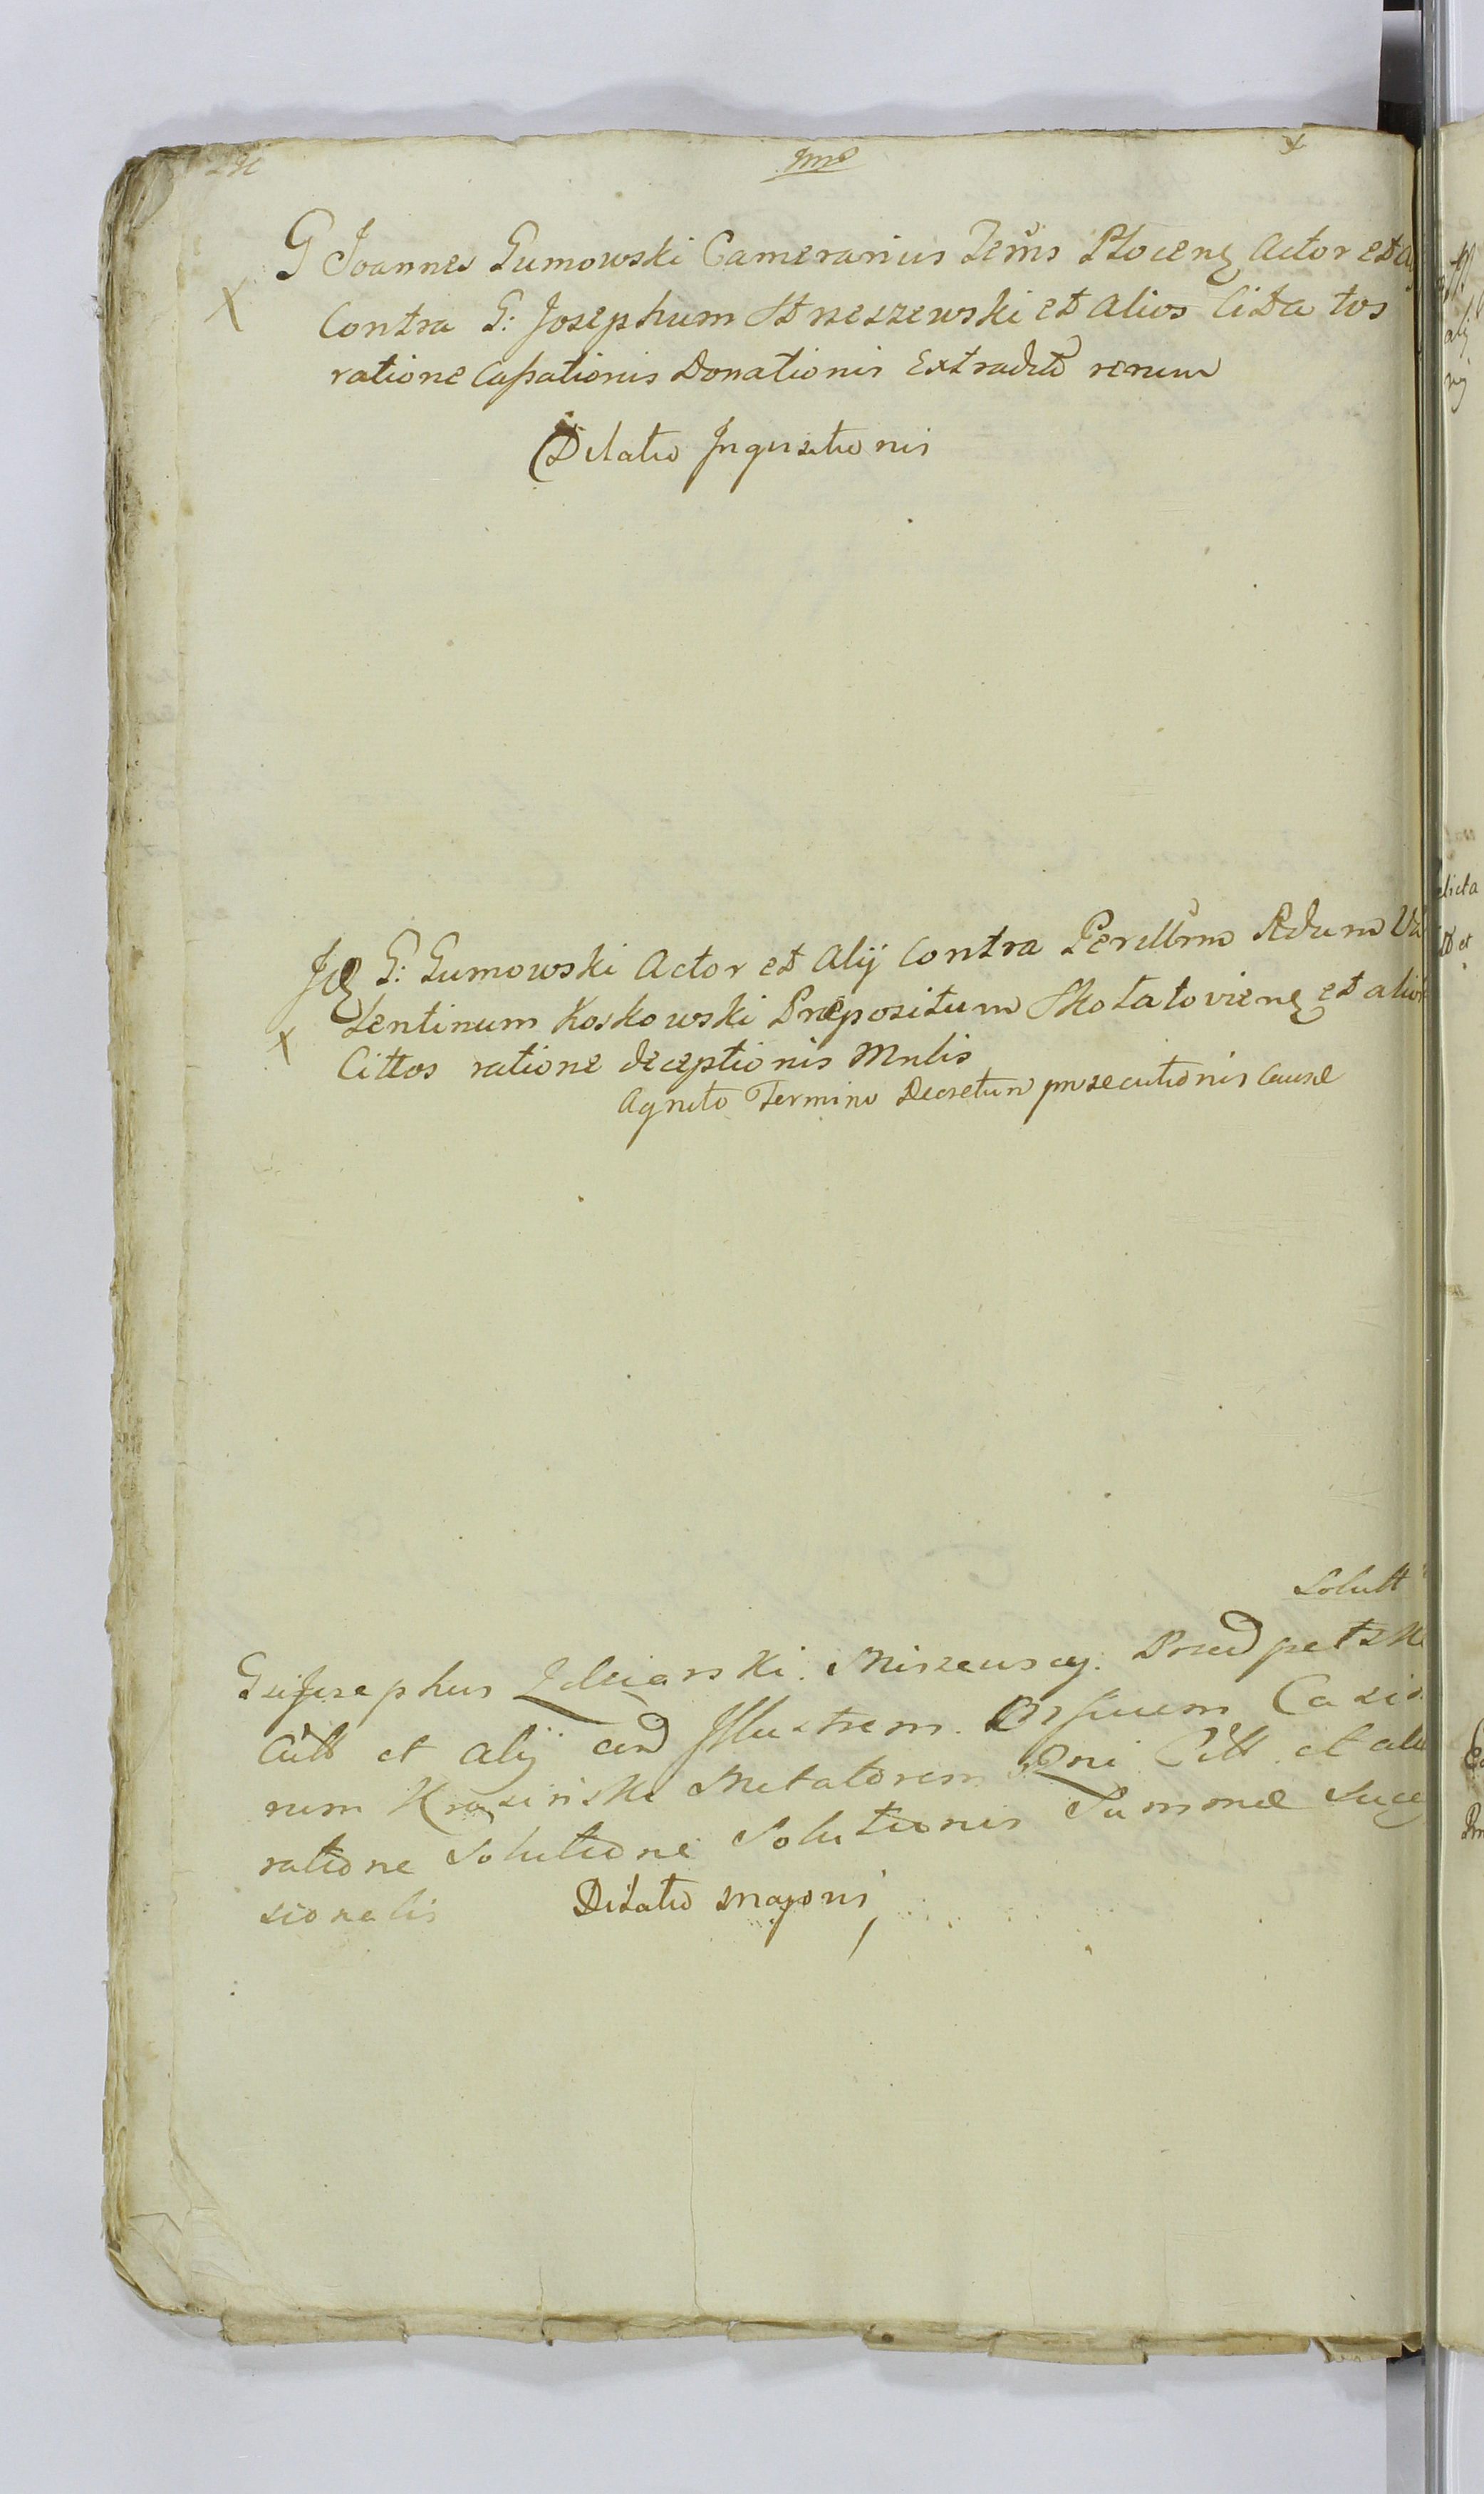 G Joannes Gumowski Camerarius Terris Plocens Actor et
X Contra G: Josephum Strzeszewski et Alios Citatos
ratione Cassationis Donationis Extradit rerum
Dilatio Inquisitionis
G: Gumowski Actor et Alij Contra Perillrm Rdum Va
X lentinum Koskowski Præpositum Skotatoviens et alios
Cittos ratione deceptionis Mulis
Agnito Termino Decretum prosecutionis Causæ
Solutt
Josephus Miszewscy
Citt et Alij Illustrem Casi
rum Krasinski Metatorem Rni Citt et
ratione Solutione Solutionis Summæ Succe
sionalis Dilatio Majoris